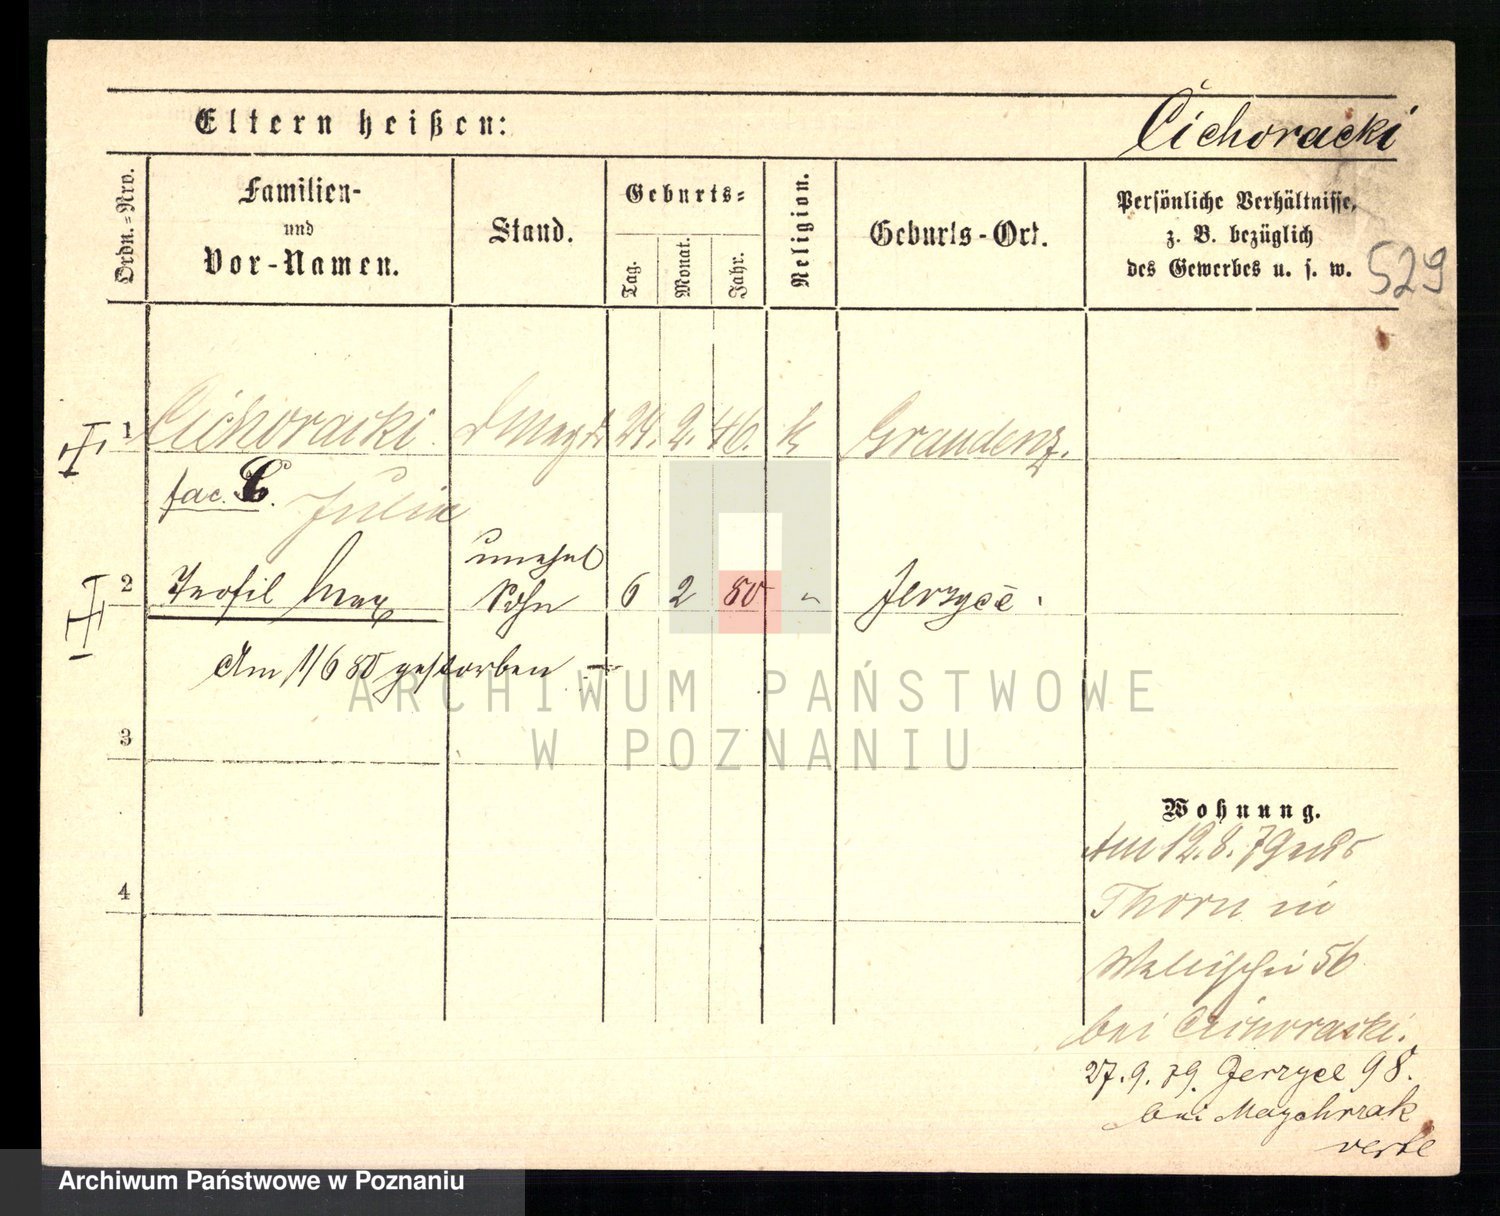 Eltern heißen:
Cichoracki
Ordn.-Nro.
Familien-
und
Vor-Namen.
Stand.
Geburts-
Tag.
Monat.
Jahr.
Religion.
Geburts-Ort.
Persönliche Verhältnisse,
z. B. bezüglich
des Gewerbes u. s. w.
529
1 Cichoracki 24. 2. 46. k Graudenz.
fac. C. Julia
unehel
2 Teofil Max Sohn 6 2 80 " Jerzyce.
Am 11/6 80 gestorben –
ARCHIWUM PAŃSTWOWE
W POZNANIU
3
Wohnung.
Am 12. 8. 79 aus
4
Thorn in
Wallischei 56
bei Cichoracki.
27. 9. 79. Jerzyce 98.
bei Maychrzak
verte
Archiwum Państwowe w Poznaniu